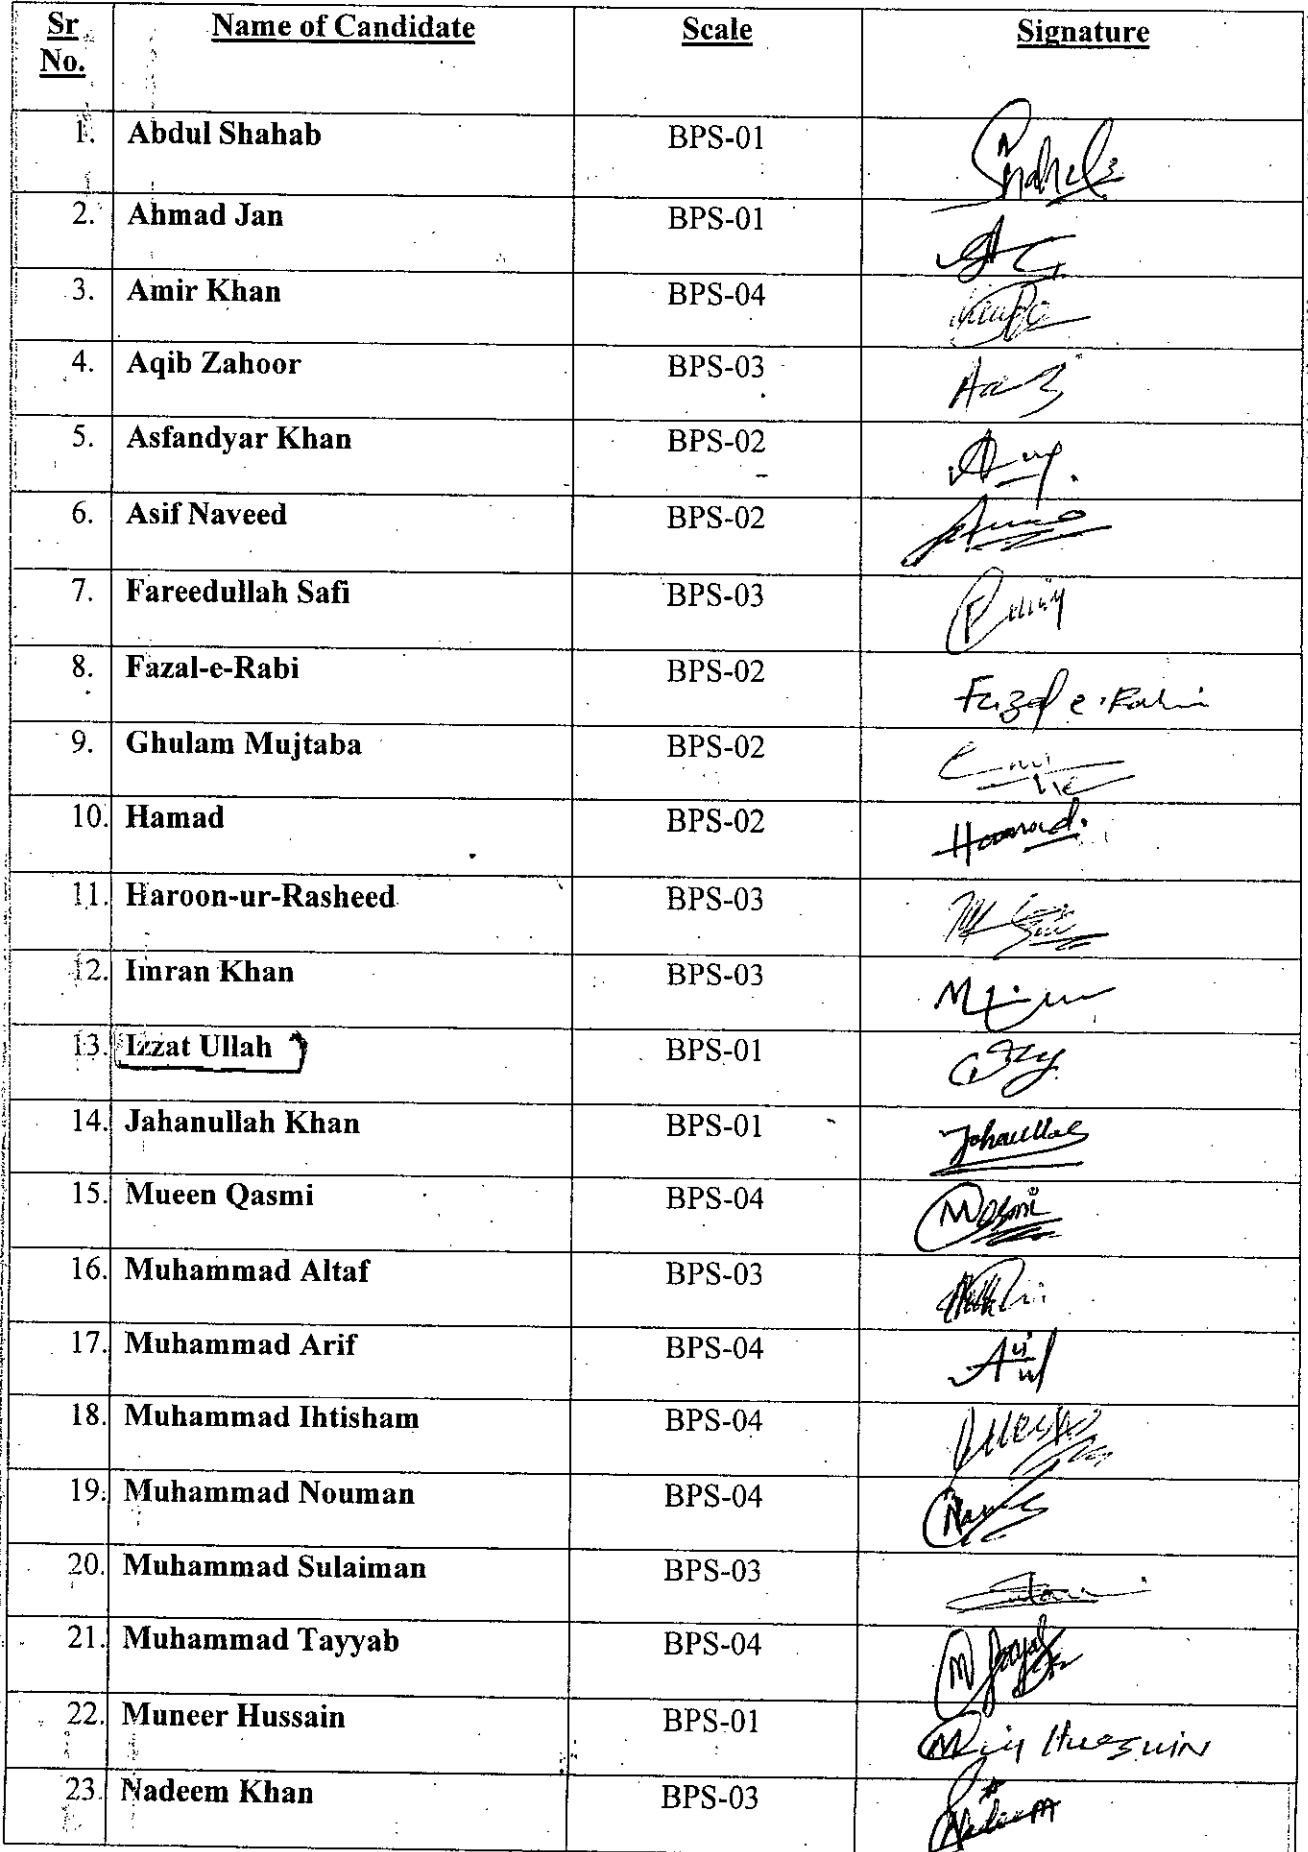 Sr No. Name of Candidate Scale Signature
1. Abdul Shahab BPS-01
2. Ahmad Jan BPS-01
3. Amir Khan BPS-04
4. Aqib Zahoor BPS-03
5. Asfandyar Khan BPS-02
6. Asif Naveed BPS-02
7. Fareedullah Safi BPS-03
8. Fazal-e-Rabi BPS-02 Fazal e Rabi
9. Ghulam Mujtaba BPS-02
10. Hamad BPS-02 Hammad.
11. Haroon-ur-Rasheed BPS-03
12. Imran Khan BPS-03
13. Izzat Ullah BPS-01
14. Jahanullah Khan BPS-01
15. Mueen Qasmi BPS-04
16. Muhammad Altaf BPS-03
17. Muhammad Arif BPS-04
18. Muhammad Ihtisham BPS-04
19. Muhammad Nouman BPS-04
20. Muhammad Sulaiman BPS-03
21. Muhammad Tayyab BPS-04
22. Muneer Hussain BPS-01
23. Nadeem Khan BPS-03 Nadeem